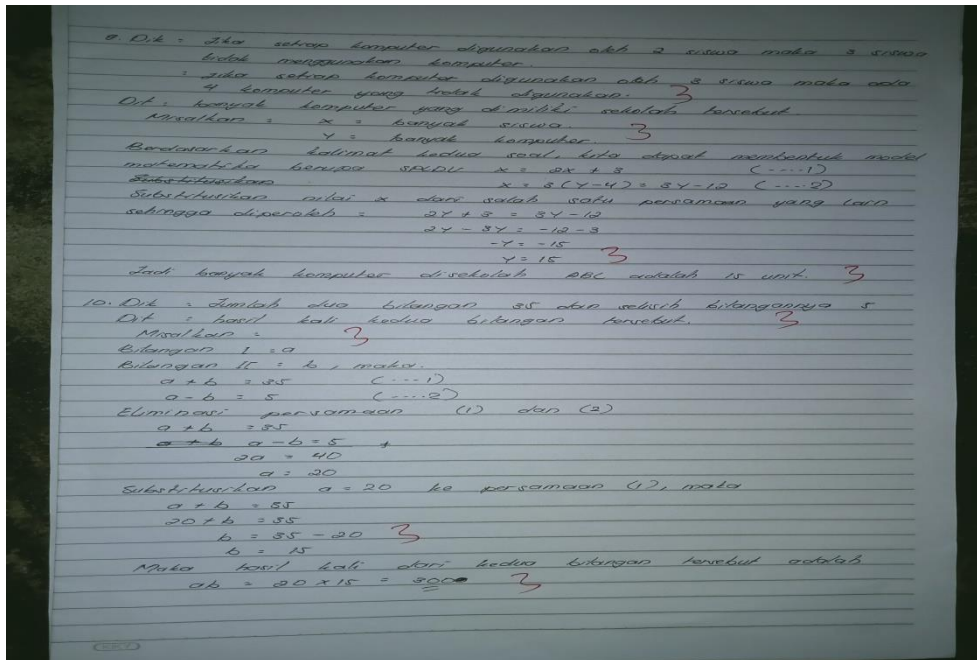 9. Dik : Jika setiap komputer digunakan oleh 2 siswa maka 3 siswa
tidak menggunakan komputer.
: Jika setiap komputer digunakan oleh 3 siswa maka ada
4 komputer yang tidak digunakan. 3
Dit : banyak komputer yang di miliki sekolah tersebut.
Misalkan : x = banyak siswa. 3
Y = banyak komputer
Berdasarkan kalimat kedua soal, kita dapat membentuk model
matematika berupa SPLDV x = 2x + 3 (....1)
Substitusikan x = 3(Y-4) = 3Y-12 (....2)
Substitusikan nilai x dari salah satu persamaan yang lain
sehingga diperoleh : 2Y + 3 = 3Y - 12
2Y - 3Y = -12 - 3
-Y = -15
Y = 15 3
Jadi banyak komputer disekolah ABC adalah 15 unit. 3
10. Dik : Jumlah dua bilangan 35 dan selisih bilangannya 5
Dit : hasil kali kedua bilangan tersebut. 3
Misalkan : 3
Bilangan I = a
Bilangan II = b, maka.
a + b = 35 (....1)
a - b = 5 (....2)
Eliminasi persamaan (1) dan (2)
a + b = 35
a + b a - b = 5 +
2a = 40
a = 20
Substitusikan a = 20 ke persamaan (1), maka
a + b = 35
20 + b = 35
b = 35 - 20 3
b = 15
Maka hasil kali dari kedua bilangan tersebut adalah
ab = 20 x 15 = 300 3